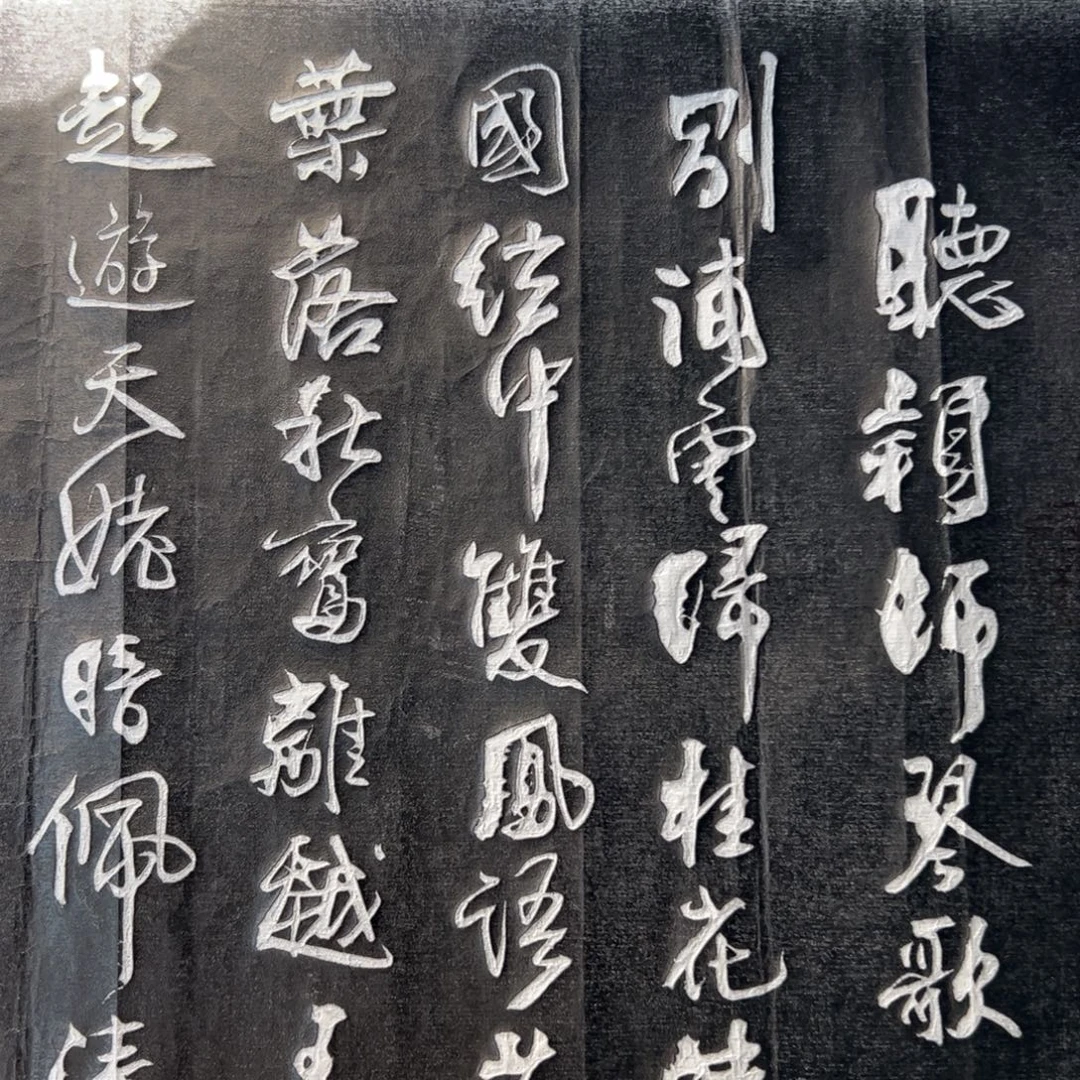 聽穎師琴歌
別浦雲歸桂花
國絃中雙鳳語
葉落秋鸞離越王
起遊天姥暗佩清